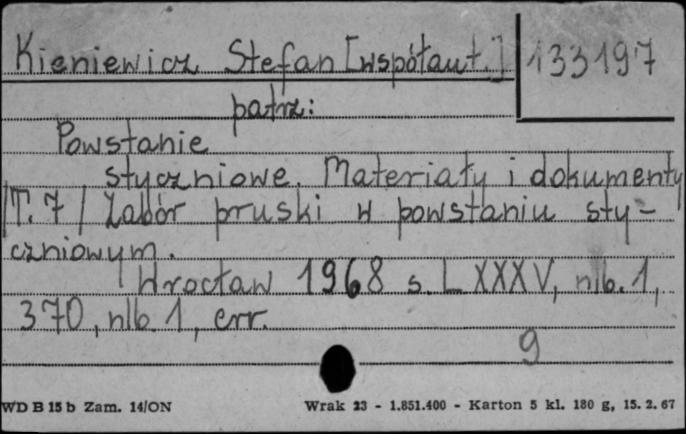 Kieniewicz Stefan [współaut.] 133197
patrz:
Powstanie
styczniowe. Materiały i dokumenty
/T. 7/ Zabór pruski w powstaniu sty-
czniowym.
Wrocław 1968 s. LXXXV, nlb. 1,
370, nlb. 1, err.
9
WD B 15 b Zam. 14/ON Wrak 23 - 1.851.400 - Karton 5 kl. 180 g, 15. 2. 67